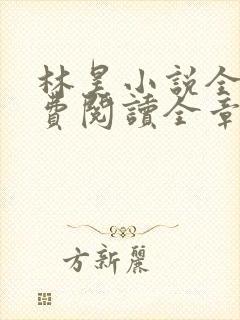 林昊小说全
費閱讀全章
方新麗